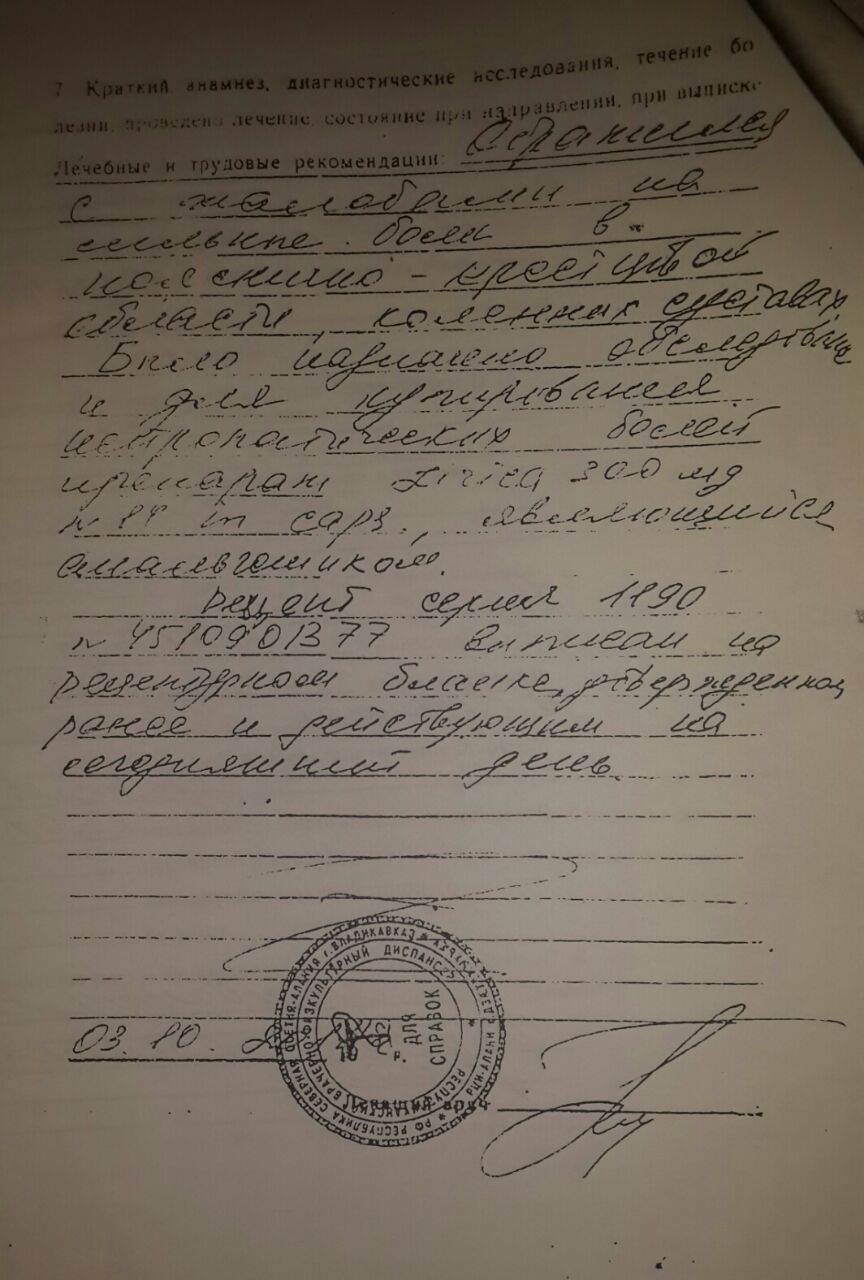 7 Краткий анамнез, диагностические исследования, течение бо
лезни, проведено лечение, состояние при направлении, при выписке
Лечебные и трудовые рекомендации: Обратился
с жалобами на
сильные боли в
пояснично - крестцовой
области, коленных суставах
Было назначено обследован
и для купирования
нейропатических болей
препарат Lirica 300 мг
n 84 in caps., являющийся
анальгетиком.
Рецепт серия 1190
выписан на
рецептурном бланке, утвержденном
ранее и действующим на
сегодняшний день
03. 10.
РФ РЕСПУБЛИКА СЕВЕРНАЯ ОСЕТИЯ-АЛАНИЯ г. ВЛАДИКАВКАЗ
РЕСПУБЛИКАНСКИЙ ВРАЧЕБНО-ФИЗКУЛЬТУРНЫЙ ДИСПАНСЕР
ДЛЯ
СПРАВОК
19 г.